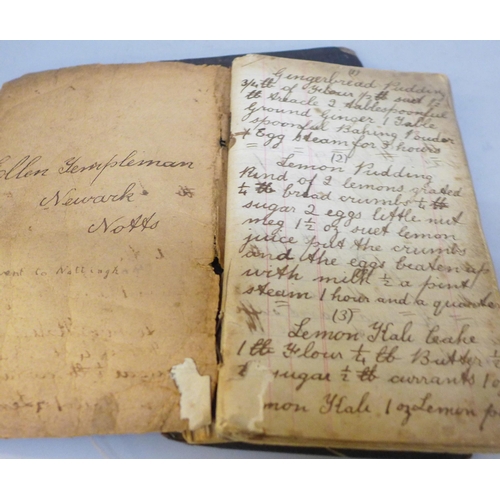 Ellen Templeman
Newark
Notts
went to Nottingh
(1)
Gingerbread Pudding
3/4 lb of Flour 1/2 lb suet 1/2
lb treacle 2 tablespoonful
Ground Ginger 1 Table
spoonful Baking Powder
1 Egg Steam for 3 hours
(2)
Lemon Pudding
Rind of 2 lemons grated
1/4 lb bread crumbs 1/4 lb
sugar 2 eggs little nut
meg 1 1/2 oz suet lemon
juice put the crumbs
and the eggs beaten up
with milk 1/2 a pint
steam 1 hour and a quarter
(3)
Lemon Kali Cake
1 lb Flour 1/4 lb Butter 1/2
sugar 1/2 lb currants 1
emon Kali 1 oz Lemon p